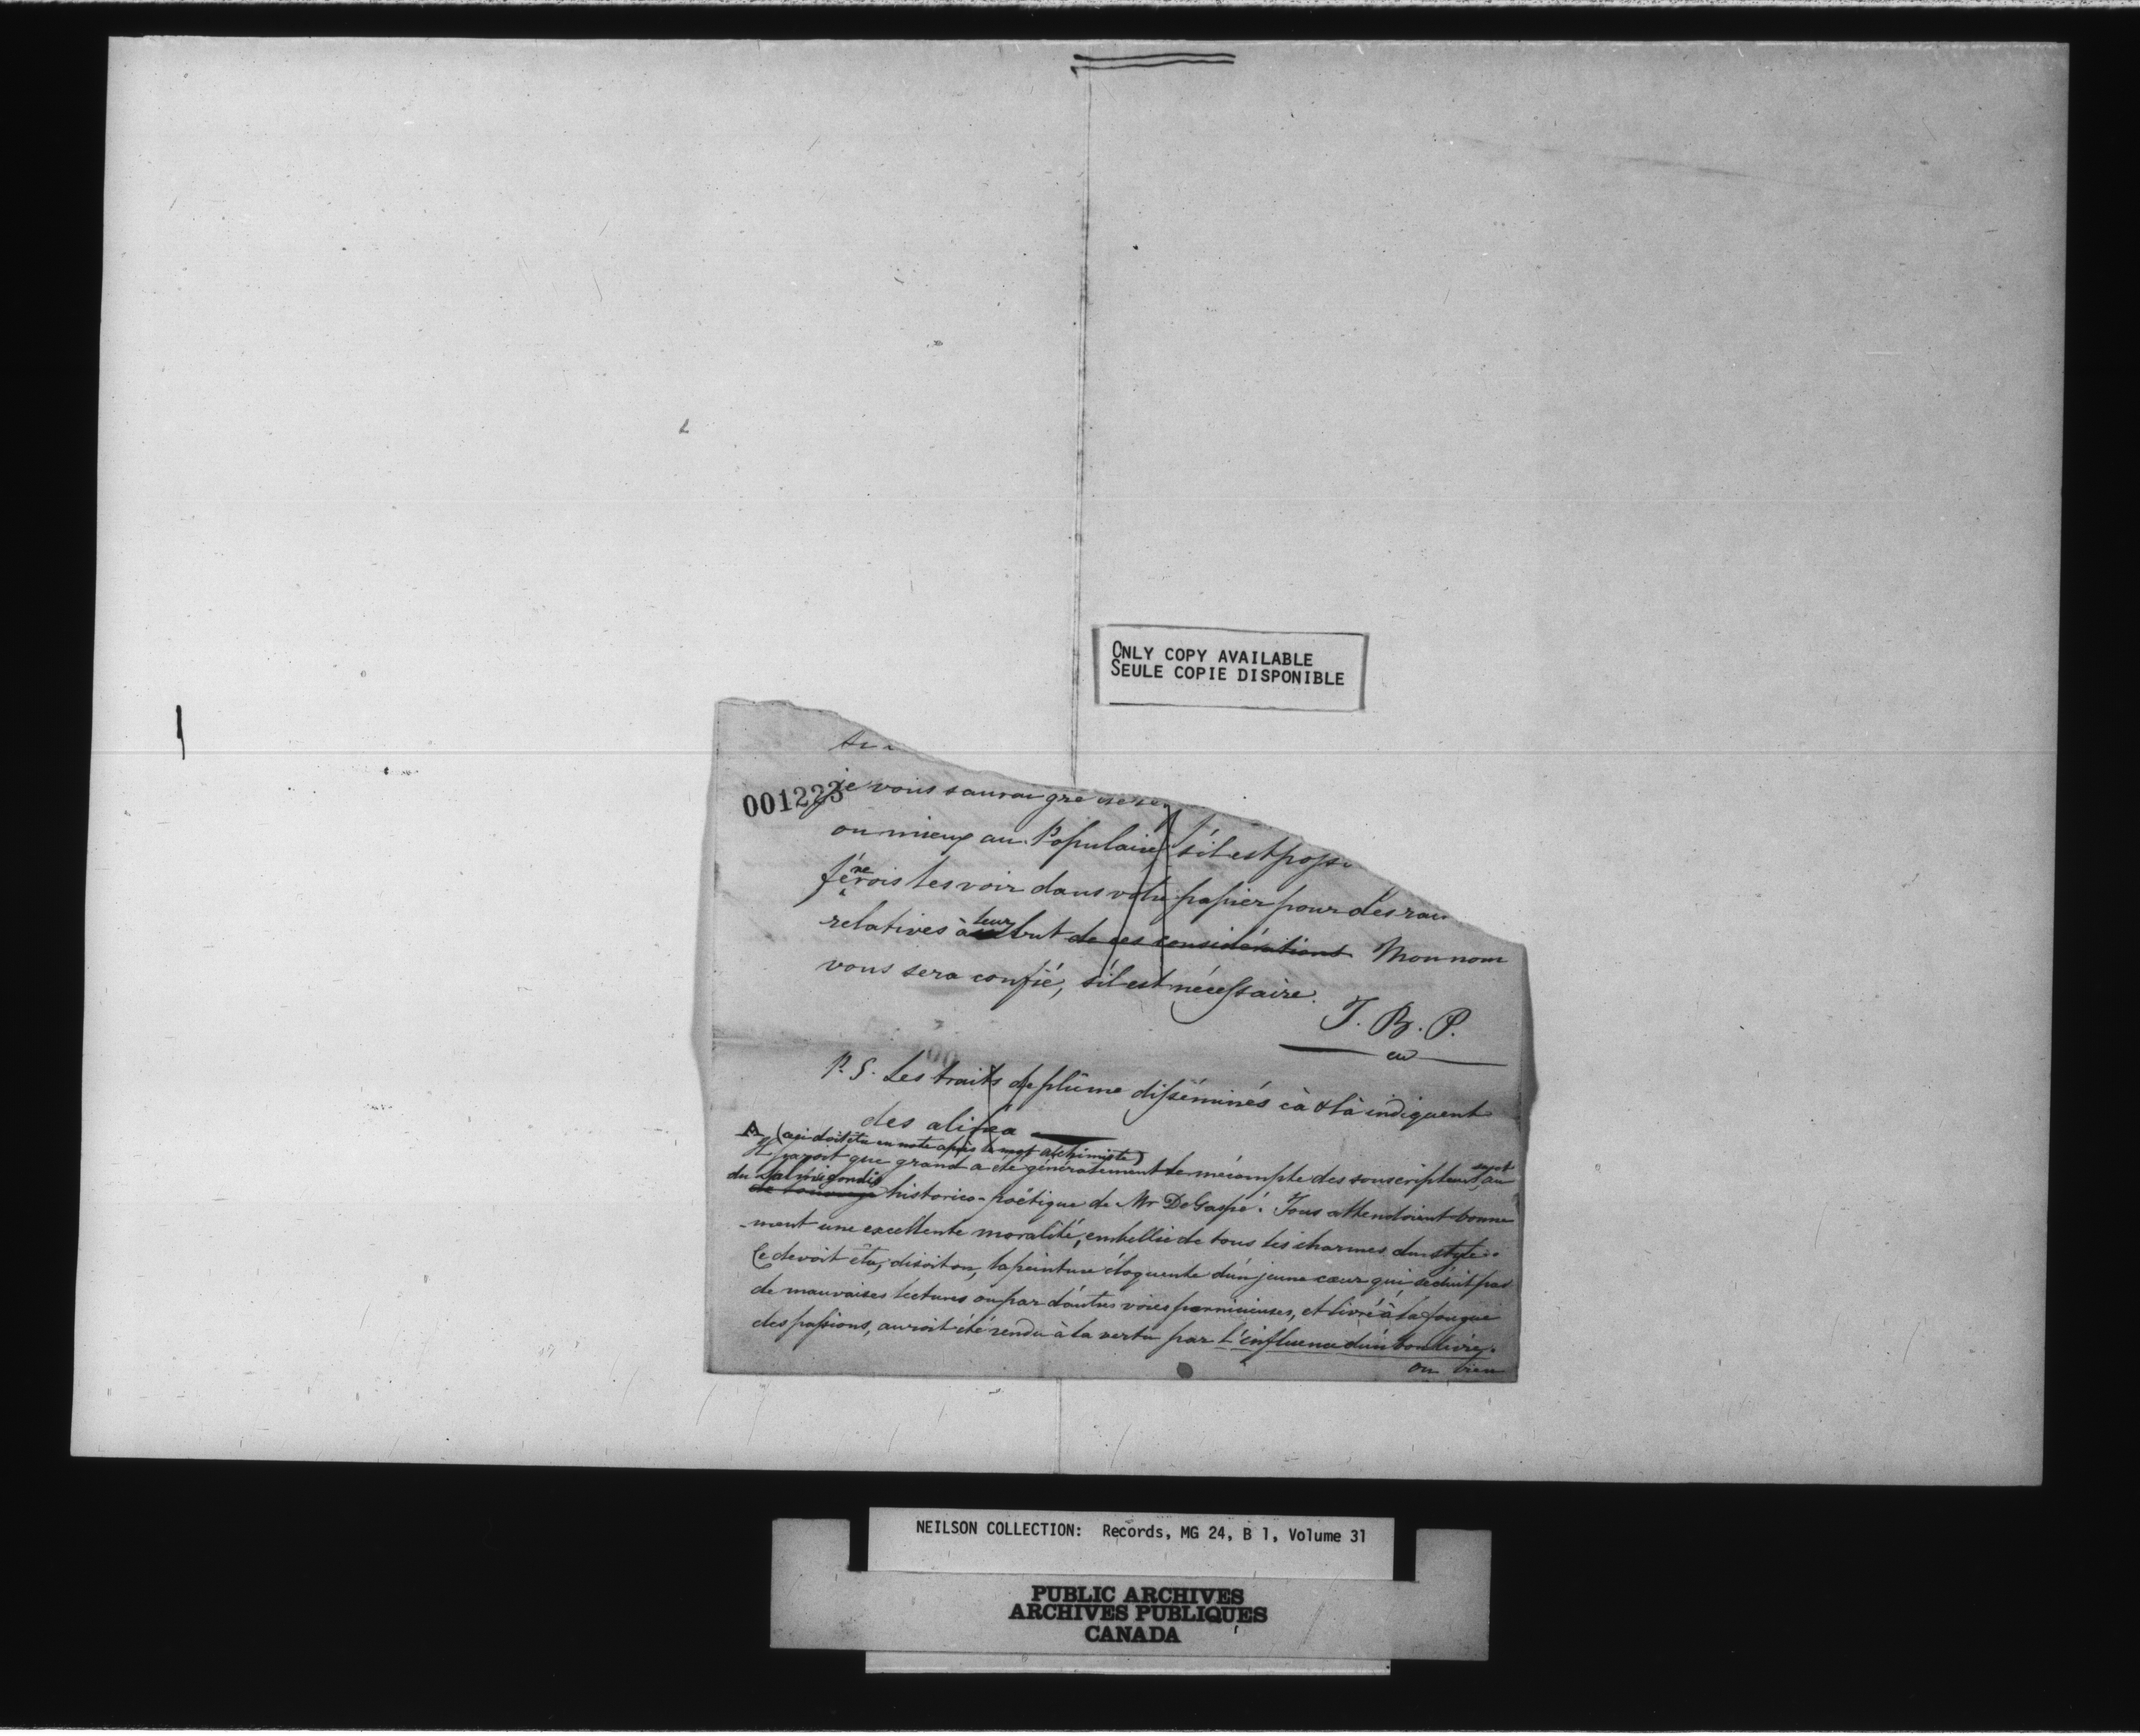 ONLY COPY AVAILABLE
SEULE COPIE DISPONIBLE
001223
je vous saurai gré
ou mieux au Populaire s'il est
ferois les voir dans votre papier pour des
relatives à leur but de ces considérations. Mon nom
vous sera confié, s'il est nécessaire.
J. B. P.
P. S. Les traits de plûme disséminés cà & là indiquent
des alinea
A (ceci doit être en note après le mot alchimiste)
Il paroit que grand a été généralement le mécompte des souscripteurs, au sujet
du Salmigondis
historico-poëtique de Mr DeGaspé. Tous attendoient bonne
-ment une excellente moralité, embellie de tous les charmes du style.
Ce devoit être, disoit on, la peinture éloquente d'un jeune cœur qui, séduit par
de mauvaises lectures ou par d'autres voies pernicieuses, et livré à la fougue
des passions, auroit été rendu à la vertu par l'influence d'un bon livre.
ou bien
NEILSON COLLECTION: Records, MG 24, B 1, Volume 31
PUBLIC ARCHIVES
ARCHIVES PUBLIQUES
CANADA